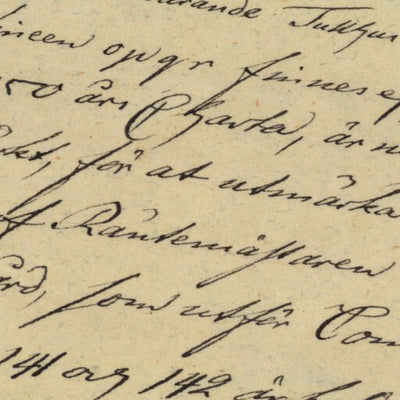 arande Tullhus
ineen opgr finnes ef
50 års Charta, är n
kt, för at utmärka
f Räntemästaren
ård, som utför Com
141 och 142 är